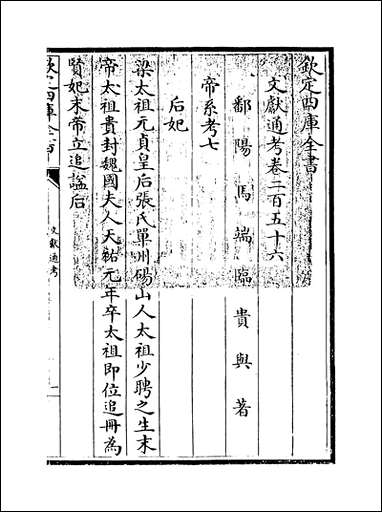 欽定四庫全書
文獻通考卷二百五十六
鄱陽馬端臨貴與著
帝系考七
后妃
梁太祖元貞皇后張氏單州碭山人太祖少聘之生末
帝太祖貴封魏國夫人天祐元年卒太祖即位追冊為
賢妃末帝立追諡后
欽定四庫全書
文獻通考